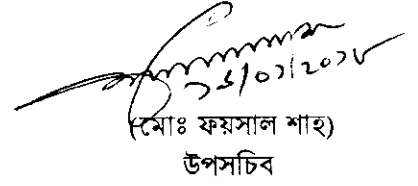 ১৬/০১/২০১৮
(মোঃ ফয়সাল শাহ)
উপসচিব